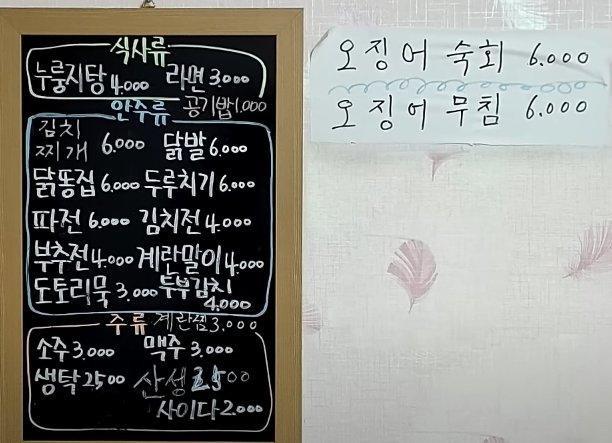 식사류
누룽지탕 4.000 라면 3.000
공기밥 1.000
안주류
김치
찌개 6.000 닭발 6.000
닭똥집 6.000 두루치기 6.000
파전 6.000 김치전 4.000
부추전 4.000 계란말이 4.000
도토리묵 3.000 두부김치
4.000
주류 계란찜 3.000
소주 3.000 맥주 3.000
생탁 2500 산성 2500
사이다 2.000
오징어 숙회 6.000
오징어 무침 6.000